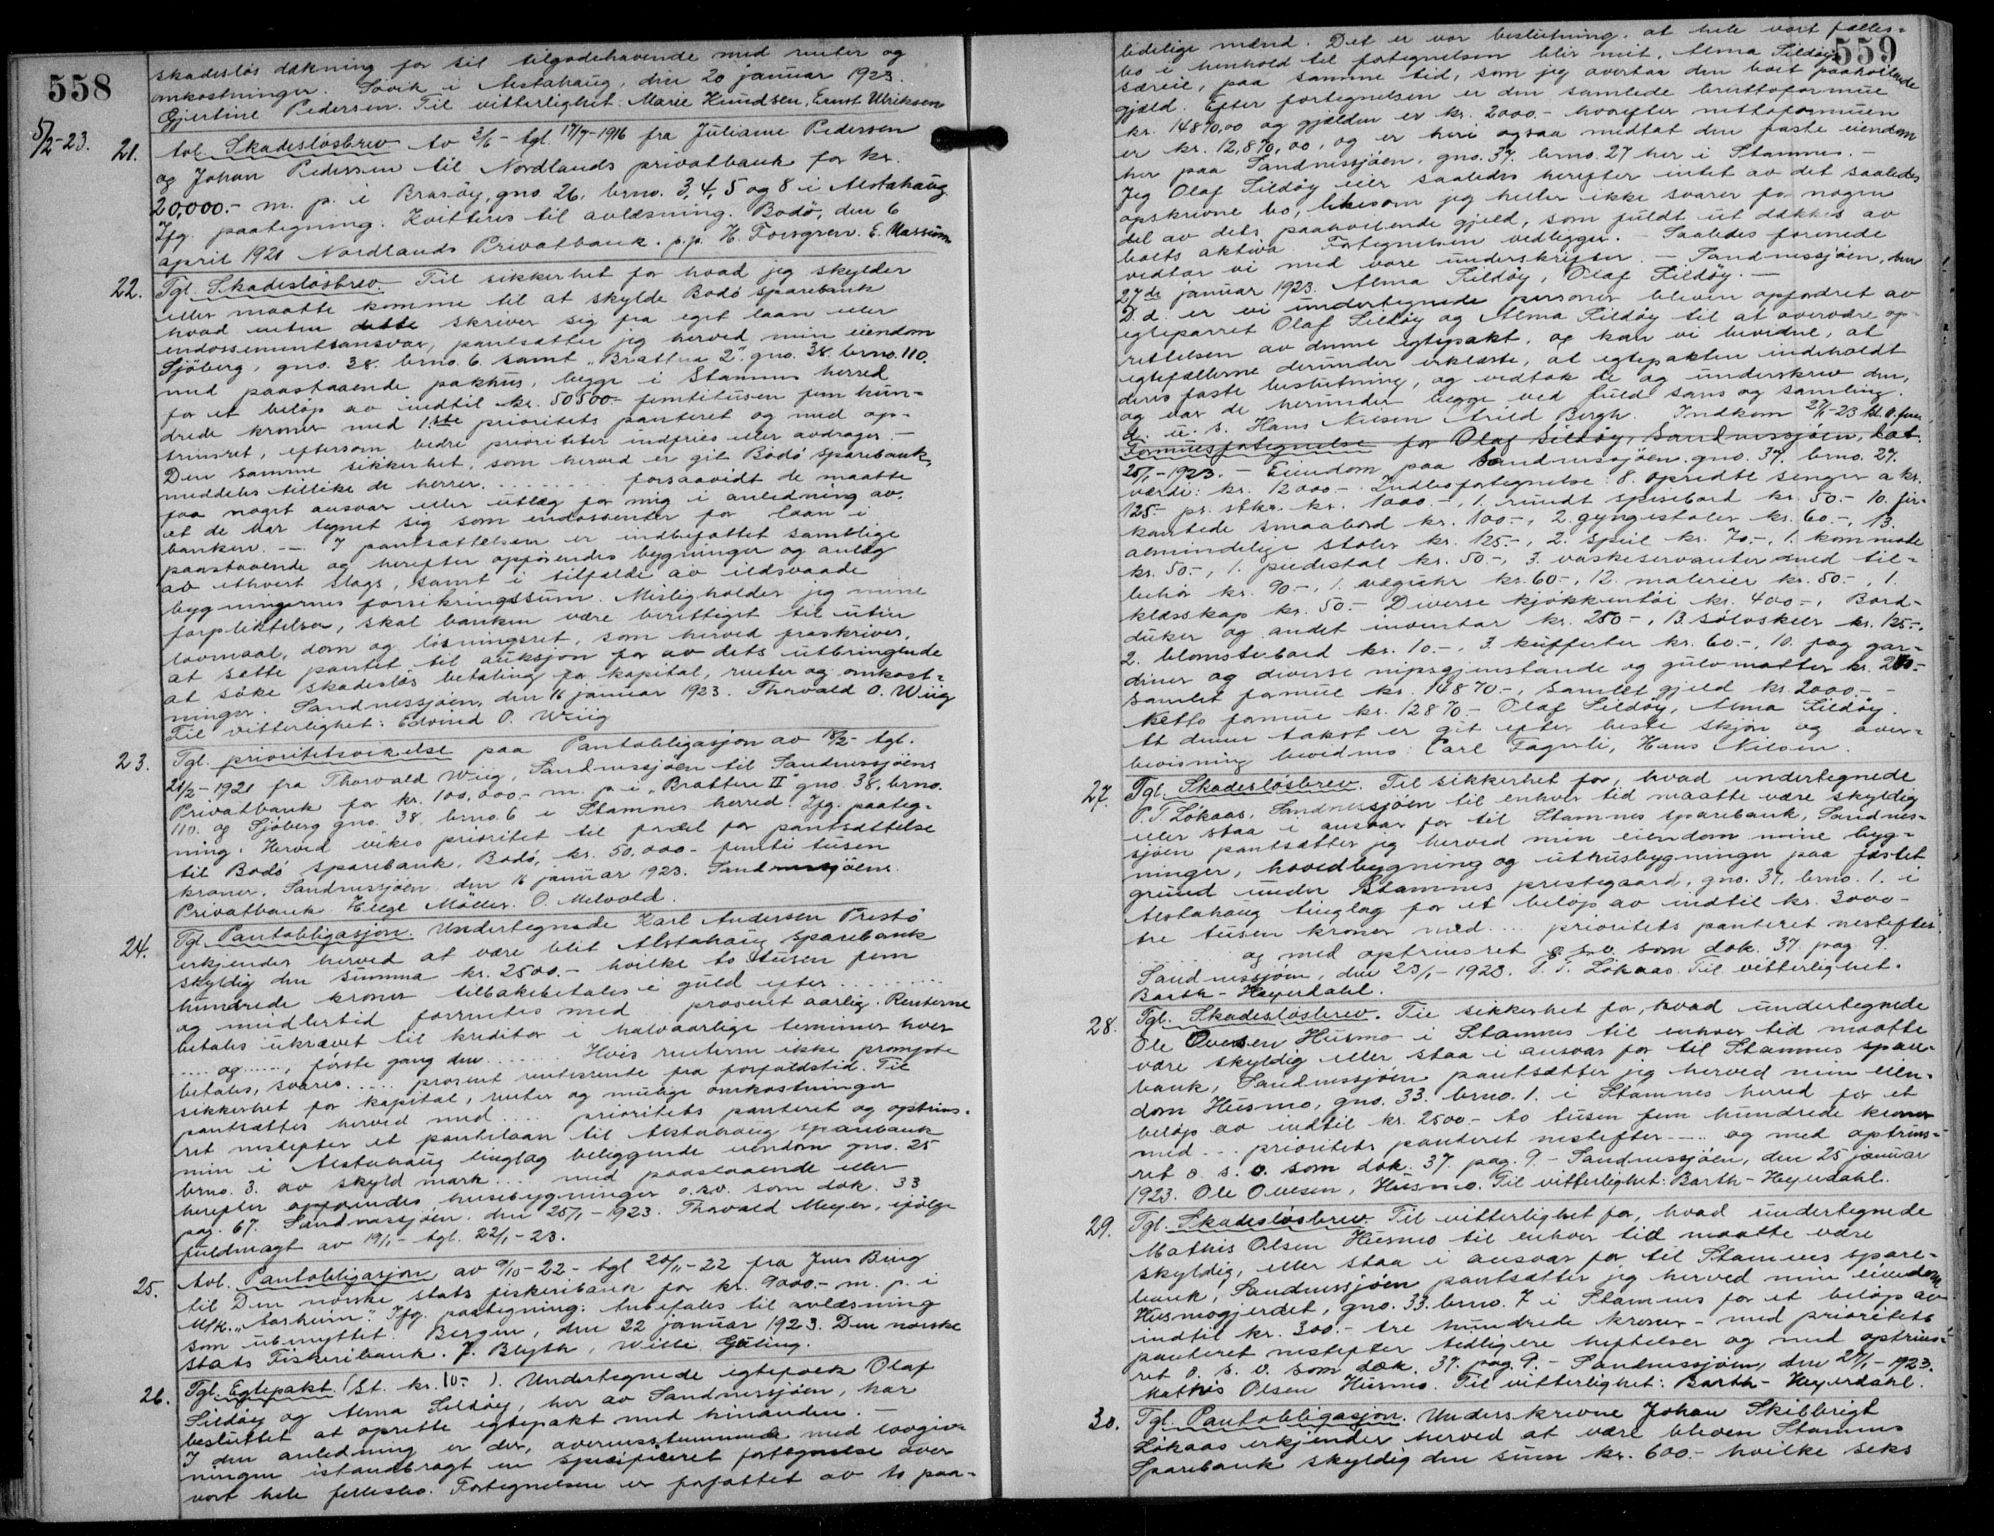 558
skadesløs dækning for sit tilgodehavende med renter og
omkostninger. Søvik i Alstahaug, den 20 januar 1923.
Gjertine Pedersen. Til vitterlighet: Marie Knudsen, Ernst Ulriksen
5/2-23. 21. Avl. Skadesløsbrev av 3/6 - tgl. 17/7-1916 fra Juliane Pedersen
og Johan Pedersen til Nordlands privatbank for kr.
20,000.- m. p. i Brasøy, gno 26, brno. 3, 4, 5 og 8 i Alstahaug
Ifg. paategning: Kvitteres til avlæsning. Bodø, den 6
april 1921 Nordlands Privatbank. p.p. H. Forsgren. E. Massum
22. Tgl. Skadesløsbrev. Til sikkerhet for hvad jeg skylder
eller maatte komme til at skylde Bodø Sparebank
hvad enten dette skriver sig fra eget laan eller
endossementsansvar, pantsætter jeg herved min eiendom
Sjøberg, gno. 38. brno. 6. samt "Brattua 2". gno. 38. brno. 110.
med paastaaende pakhus, begge i Stamnes herred
for et beløp av indtil kr. 50500.- femtitusen fem hun-
drede kroner med 1.ste prioritets panteret og med op-
trinsret, eftersom bedre prioriteter indfries eller avdrages. -
Den samme sikkerhet, som herved er git Bodø Sparebank,
meddeles tillike de herrer ........ forsaavidt de maatte
faa noget ansvar eller utlæg for mig i anledning av,
at de har tegnet sig som endossenter for laan i
banken. - I pantsættelsen er indbefattet samtlige
paastaaende og herefter opførendes bygninger og anlæg
av ethvert slags, samt i tilfælde av ildsvaade
bygningernes forsikringssum. Misligholder jeg mine
forpliktelser, skal banken være berettiget til uten
lovmaal, dom og løsningsret, som herved fraskrives,
at sætte pantet til auksjon for av dets utbringende
at søke skadesløs betaling for kapital, renter og omkost-
ninger. Sandnessjøen, den 16 januar 1923. Thorvald O. Wiig
Til vitterlighet: Edvind O. Wiig
23. Tgl. prioritetsvikelse paa Pantobligasjon av 18/2- tgl.
21/2-1921 fra Thorvald Wiig, Sandnessjøen til Sandnessjøens
Privatbank for kr. 100,000.- m. p. i "Brattua II" gno. 38, brno.
110. og Sjøberg gno. 38. brno. 6 i Stamnes herred. Ifg. paateg-
ning: Herved vikes prioritet til fordel for pantsættelse
til Bodø Sparebank, Bodø, kr. 50.000.- femti tusen
kroner. Sandnessjøen den 16 januar 1923. Sandnessjøens
Privatbank Helge Møller. O. Melvold.
24. Tgl. Pantobligasjon. Undertegnede Karl Andersen Prestø
erkjender herved at være blit Alstahaug Sparebank
skyldig den summa kr. 2500.- hvilke to tusen fem
hundrede kroner tilbakebetales i guld efter ........
og imidlertid forrentes med .. prosent aarlig. Renterne
betales ukrævet til kreditor i halvaarlige terminer hver
.... og ....., første gang den ...... Hvis renterne ikke prompte
betales, svares ..... prosent rentesrente fra forfaldstid. Til
sikkerhet for kapital, renter og mulige omkostninger
pantsættes herved med ... prioritets panteret og optrins-
ret nestefter et pantelaan til Alstahaug sparebank
min i Alstahaug tinglag beliggende eiendom gno. 25
brno. 3. av skyld mark ... med paastaaende eller
herefter opførendes husebygninger o.s.v. som dok. 33
pag. 67. Sandnessjøen. den 25/1-1923. Thorvald Meyer, ifølge
fuldmagt av 19/1- tgl. 22/1-23.
25. Avl. Pantobligasjon av 9/10-22 - tgl 20/11-22 fra Jens Bing
til Den norske stats fiskeribank for kr. 9000.- m. p. i
M/K. "Aarheim". Ifg. paategning: Anbefales til avlæsning
som ubenyttet. Bergen, den 22 januar 1923. Den norske
stats Fiskeribank. J. Blyth, Wille Gøling.
26. Tgl. Egtepakt. (St. kr. 10.- ). Undertegnede egtefolk Olaf
Sildøy og Alma Sildøy, her av Sandnessjøen, har
besluttet at oprette egtepakt med hinanden. -
I den anledning er der, overensstemmende med lovgiv-
ningen istandbragt en specificeret fortegnelse over
vort hele fællesbo. Fortegnelsen er forfattet av to paa-
559
lidelige mænd. Det er vor beslutning, at hele vort fælles-
bo i henhold til fortegnelsen blir mit, Alma Sildøys
særeie, paa samme tid, som jeg overtar den boet paahvilende
gjæld. Efter fortegnelsen er den samlede bruttoformue
kr. 14870,00 og gjælden er kr. 2000.- hvorefter nettoformuen
er kr. 12,870,00, og er heri ogsaa medtat den faste eiendom
her paa Sandnessjøen, gno. 37. brno. 27 her i Stamnes. -
Jeg Olaf Sildøy eier saaledes herefter intet av det saaledes
opskrevne bo, likesom jeg heller ikke svarer for nogen
del av dets paahvilende gjæld, som fuldt ut dækkes av
boets aktiva. Fortegnelsen vedligger. - Saaledes forenede
vedtar vi med vore underskrifter. - Sandnessjøen, den
27de januar 1923. Alma Sildøy, Olaf Sildøy. -
D. d. er vi undertegnede personer bleven opfordret av
egteparret Olaf Sildøy og Alma Sildøy til at overvære op-
rettelsen av denne egtepakt, og kan vi bevidne, at
egtefællerne derunder erklærte, at egtepakten indeholdt
deres faste beslutning, og vedtok de og underskrev den,
og var de herunder begge ved fuld sans og samling.
d. u. s. Hans Nilsen Arild Bergh. Indkom 27/1-23 kl. 11. form
Formuesfortegnelse for Olaf Sildøy, Sandnessjøen, dat.
25/1-1923. - Eiendom paa Sandnessjøen gno. 37. brno. 27.
værdi: kr. 12000.- Indbofortegnelse: 8. opredte senger a kr.
125.- pr. stkr. kr. 1000.-, 1. rundt spisebord kr. 50.- 10. fir-
kantede smaabord kr. 100.-, 2. gyngestoler kr. 60.-, 13.
almindelige stoler kr. 125.-, 2. speil kr. 70.-, 1. kommode
kr. 50.-, 1. piedestal kr. 50.-, 3. vaskeservanter med til-
behør kr. 90.-, 1. vægguhr kr. 60.-, 12. malerier kr. 50.-, 1.
klæsskap kr. 50.- Diverse kjøkkentøi kr. 400.-, Bord-
duker og andet inventar kr. 250.-, 13. sølvskeer kr. 125.-,
2. blomsterbord kr. 10.-, 3. kufferter kr. 60.-, 10. fag gar-
diner og diverse nipsgjenstande og gulvmatter kr. 280.-
Samlet formue kr. 14870.-, Samlet gjeld kr. 2000.- -
Netto formue kr. 12870.- Olaf Sildøy, Alma Sildøy.
At denne takst er git efter beste skjøn og over-
bevisning bevidnes: Carl Fagerli, Hans Nilsen.
27. Tgl. Skadesløsbrev. Til sikkerhet for, hvad undertegnede
P. T. Løkaas, Sandnessjøen til enhver tid maatte være skyldig
eller staa i ansvar for til Stamnes sparebank, Sandnes-
sjøen pantsætter jeg herved min eiendom mine byg-
ninger, hovedbygning og uthusbygninger paa fæstet
grund under Stamnes prestegaard, gno. 37. brno. 1. i
Alstahaug tinglag for et beløp av indtil kr. 3000.-
tre tusen kroner med .... prioritets panteret nestefter
.... og med optrinsret o.s.v. som dok. 37. pag 9.
Sandnessjøen, den 23/1-1923. P. T. Løkaas. Til vitterlighet.
Barth-Heyerdahl.
28. Tgl. Skadesløsbrev. Til sikkerhet for, hvad undertegnede
Ole Ovesen Husmo i Stamnes til enhver tid maatte
være skyldig eller staa i ansvar for til Stamnes spare-
bank, Sandnessjøen pantsætter jeg herved min eien-
dom Husmo, gno. 33. brno. 1. i Stamnes herred for et
beløp av indtil kr. 2500.- to tusen fem hundrede kroner
med ... prioritets panteret nestefter .... og med optrins-
ret o. s. v. som dok. 37. pag. 9. - Sandnessjøen, den 25 januar
1923. Ole Ovesen, Husmo. Til vitterlighet: Barth-Heyerdahl.
29. Tgl. Skadesløsbrev. Til vitterlighet for, hvad undertegnede
Mathis Olsen Husmo til enhver tid maatte være
skyldig, eller staa i ansvar for til Stamnes spare-
bank, Sandnessjøen pantsætter jeg herved min eiendom
Husmogjerdet, gno. 33. brno. 7 i Stamnes for et beløp av
indtil kr. 300.- tre hundrede kroner - med prioritets
panteret nestefter tidligere heftelser og med optrins-
ret o. s. v. som dok. 37. pag. 9. - Sandnessjøen, den 27/1-1923.
Mathis Olsen Husmo. Til vitterlighet: Barth-Heyerdahl.
30. Tgl. Pantobligasjon. Underskrevne Johan Skilbrigt
Løkaas erkjender herved at være bleven Stamnes
Sparebank skyldig den sum kr. 600.- hvilke seks